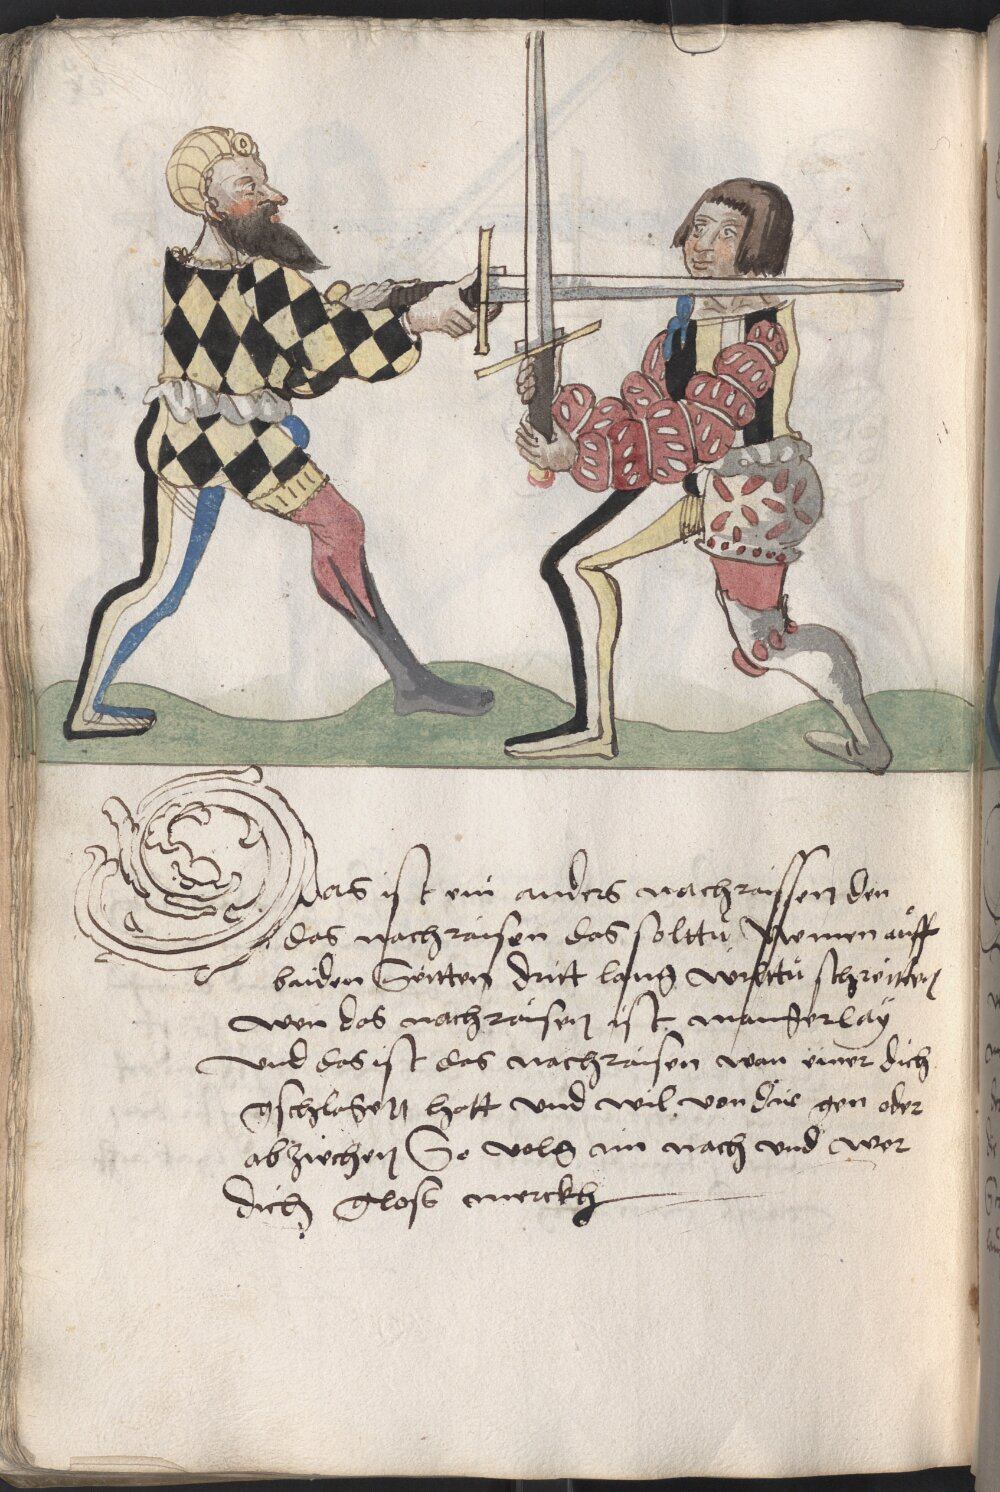 Das ist ein anders nachraissen den
das nachraisen das solttu nemen auff
baiden Seitten dritt lang wiltttu schreitten
wen das nachraisen ist mangerlay
und das ist das nachraisen wan einer dich
gschlagen hatt und wil von dir gen oder
abziechen So volg im nach und wer
dich glosß merckh